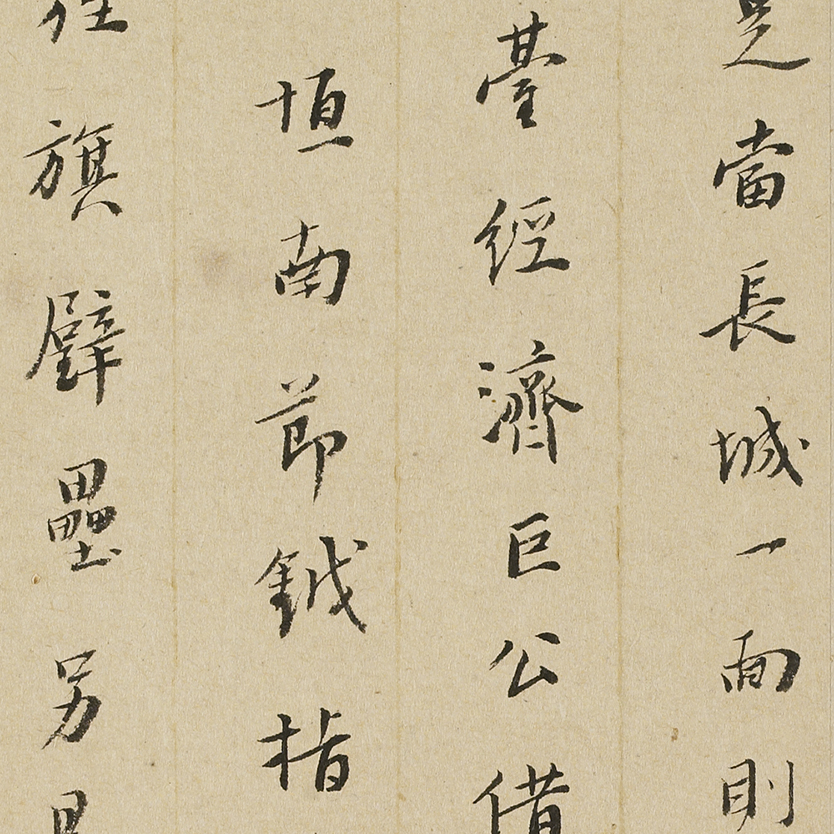 當長城一面則
臺經濟巨公借
垣南節鉞指
旗壁壘另